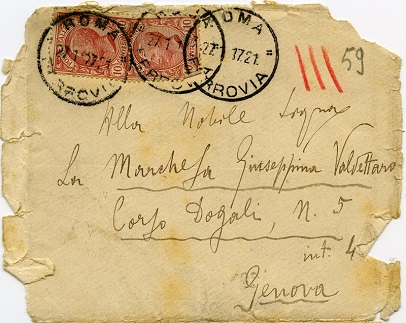 ROMA
FERROVIA
ROMA
FERROVIA
27. 1721
10
10
59
Alla Nobile Signa
La Marchesa Giuseppina Valdettaro
Corso Dogali, N. 5
int. 4
Genova